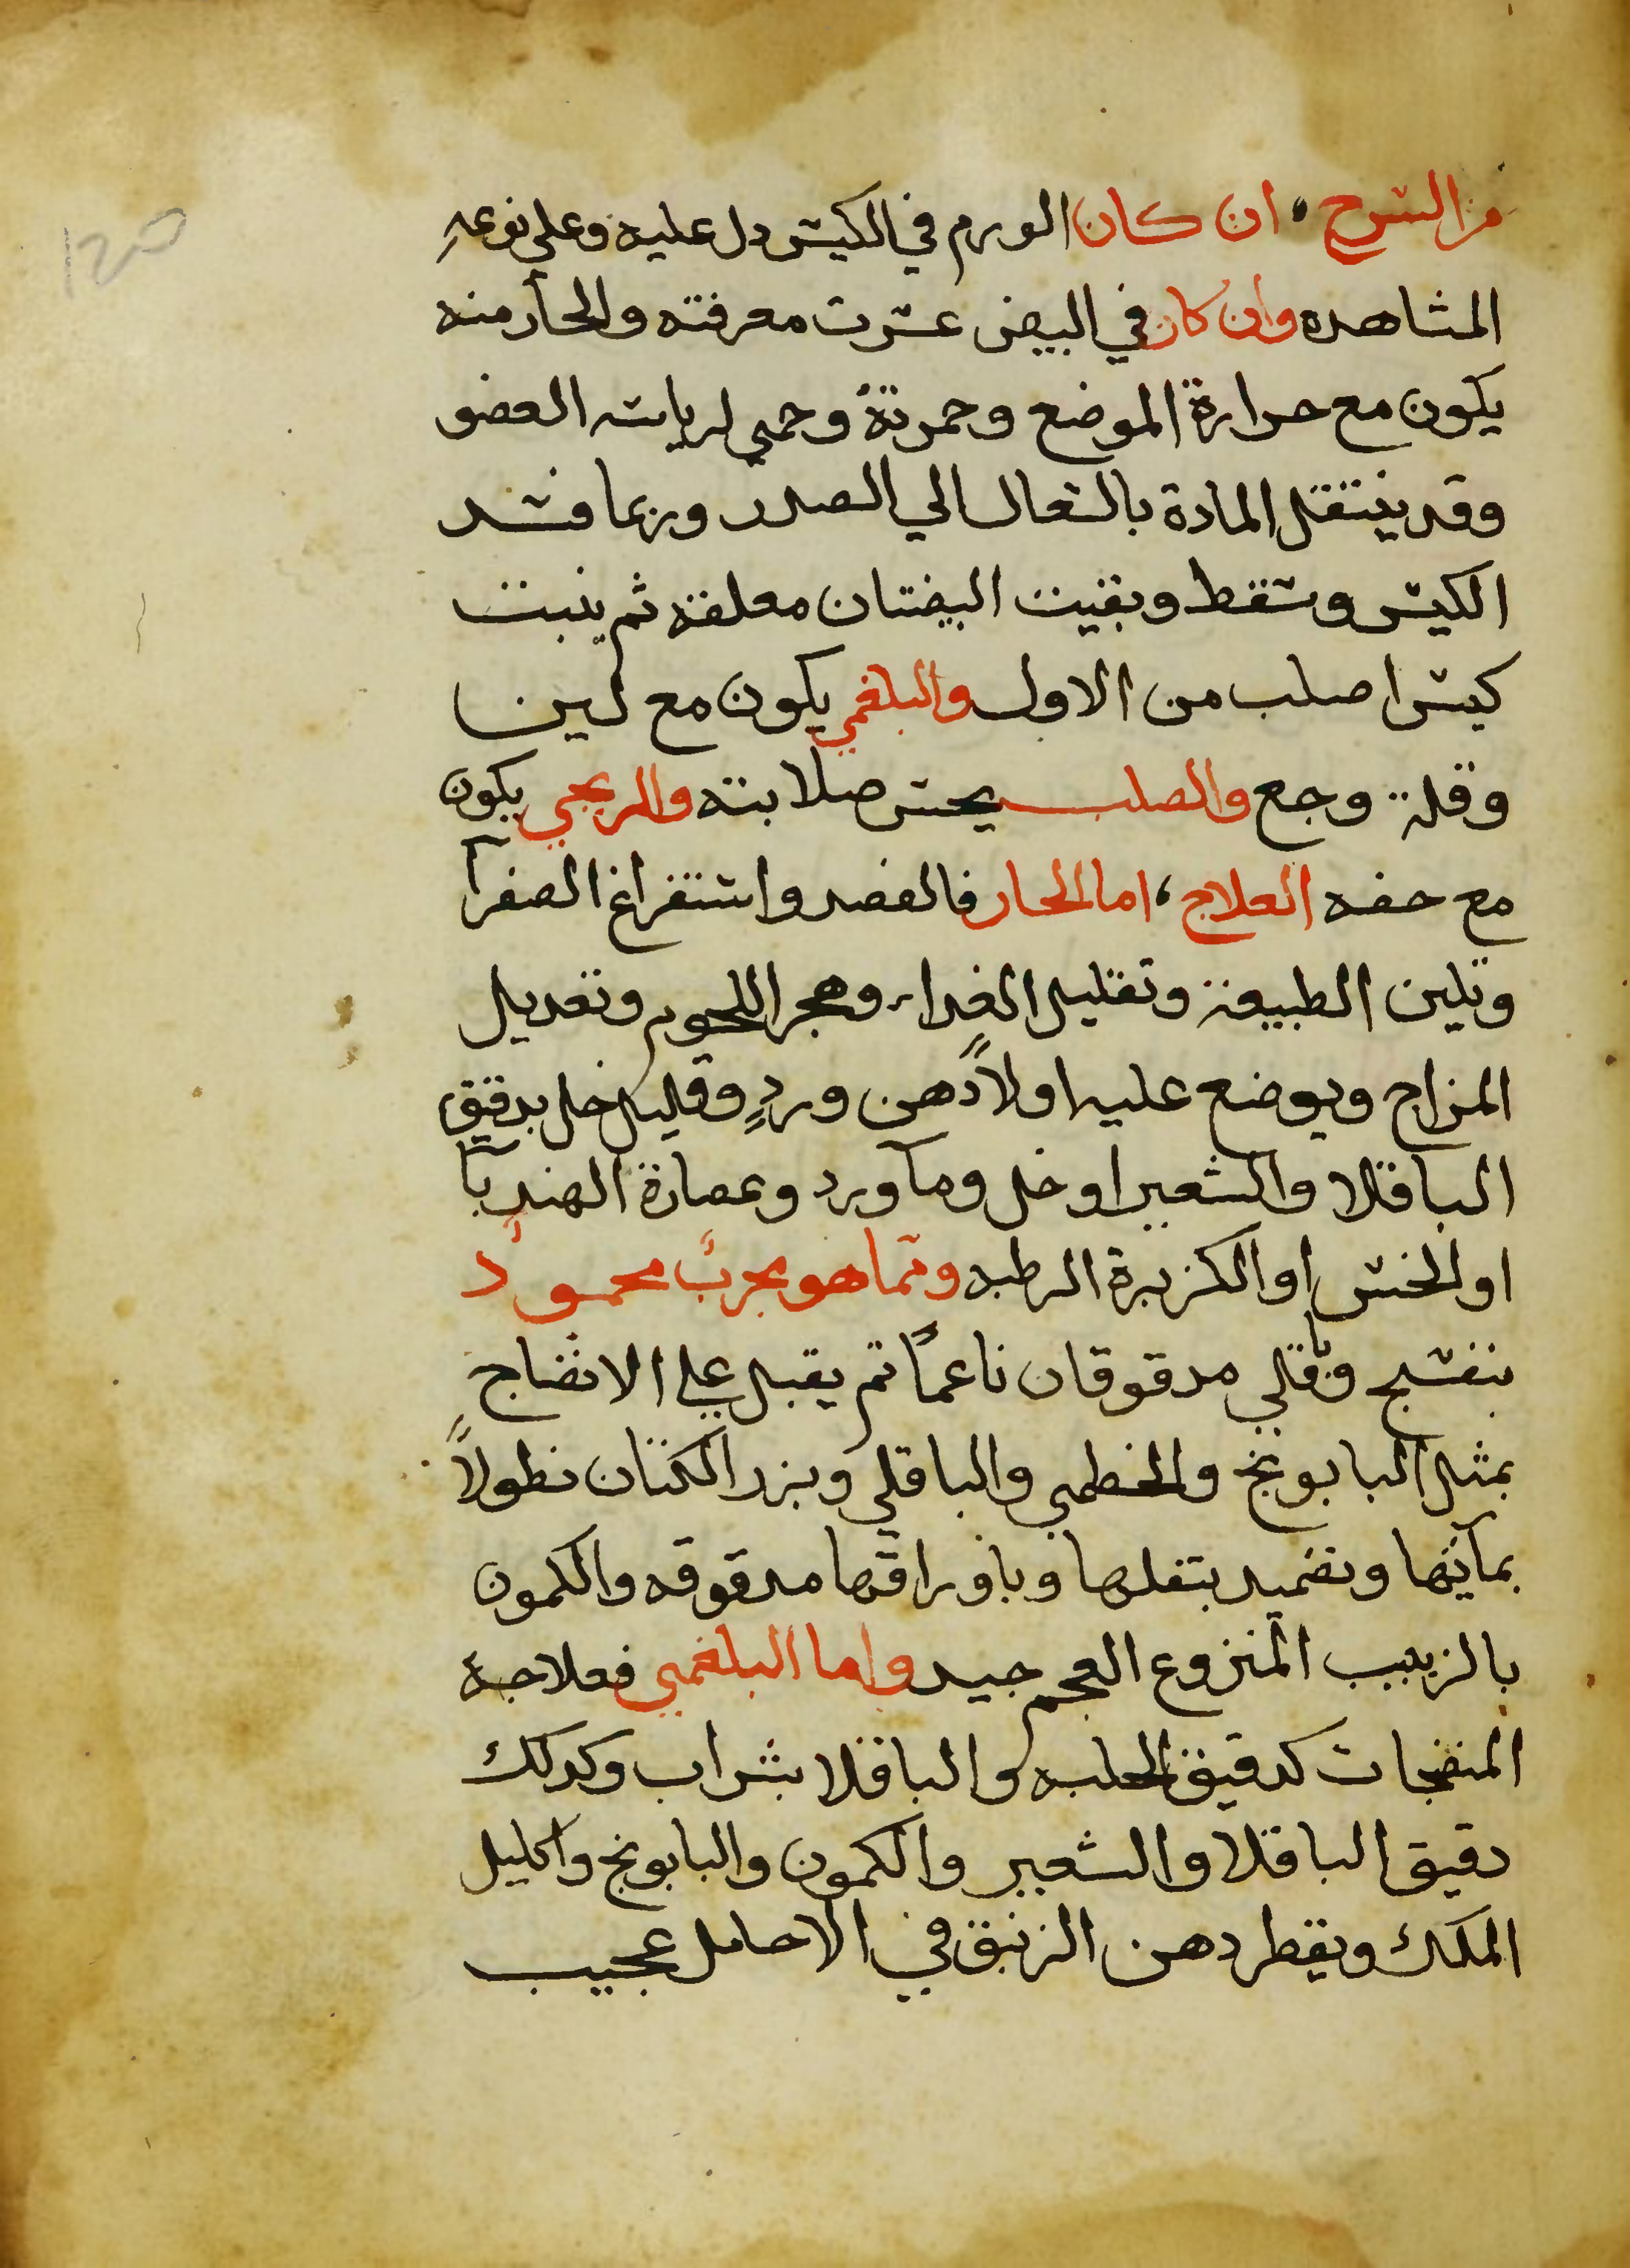 من الشرح ، ان كان الورم في الكيس دل عليه وعلي نوعه
المشاهده وان كان في البيض عسرت معرفته والحار منه
يكون مع حرارة الموضع وحمرتة وحمي لرياسه العضو
وقد ينتقل المادة بالسعال الي الصدر وربما فسد
الكيس وسقط وبقيت البيضتان معلقه ثم ينبت
كيس اصلب من الاول والبلغمي يكون مع لين
وقلة وجع والصلب يحس صلابته والريحي يكون
مع خفه العلاج ، اما الحار فالفصد واستفراغ الصفرآ
وتلين الطبيعة وتقليل الغداء وهجر اللحوم وتعديل
المزاج ويوضع عليه اولاً دهن وردٍ وقليل خل بدقيق
الباقلا والشعير او خل ومآ ورد وعصارة الهندبآ
او الخس او الكزبرة الرطبه ومما هو مجرب محمود
بنفسج وباقلي مدقوقان ناعماً ثم يقبل علي الانضاج
بمثل البابونج والخطمي والباقلي وبزر الكتان نطولاً
بمآئها وتضميد بتفلها وباوراقها مدقوقه والكمون
بالزبيب المنزوع العجم جيد واما البلغمي فعلاجه
المنضجات كدقيق الحلبه والباقلا بشراب وكدلك
دقيق الباقلا والشعير والكمون والبابونج واكليل
الملك ويقطر دهن الزنبق في الاحليل عجيب